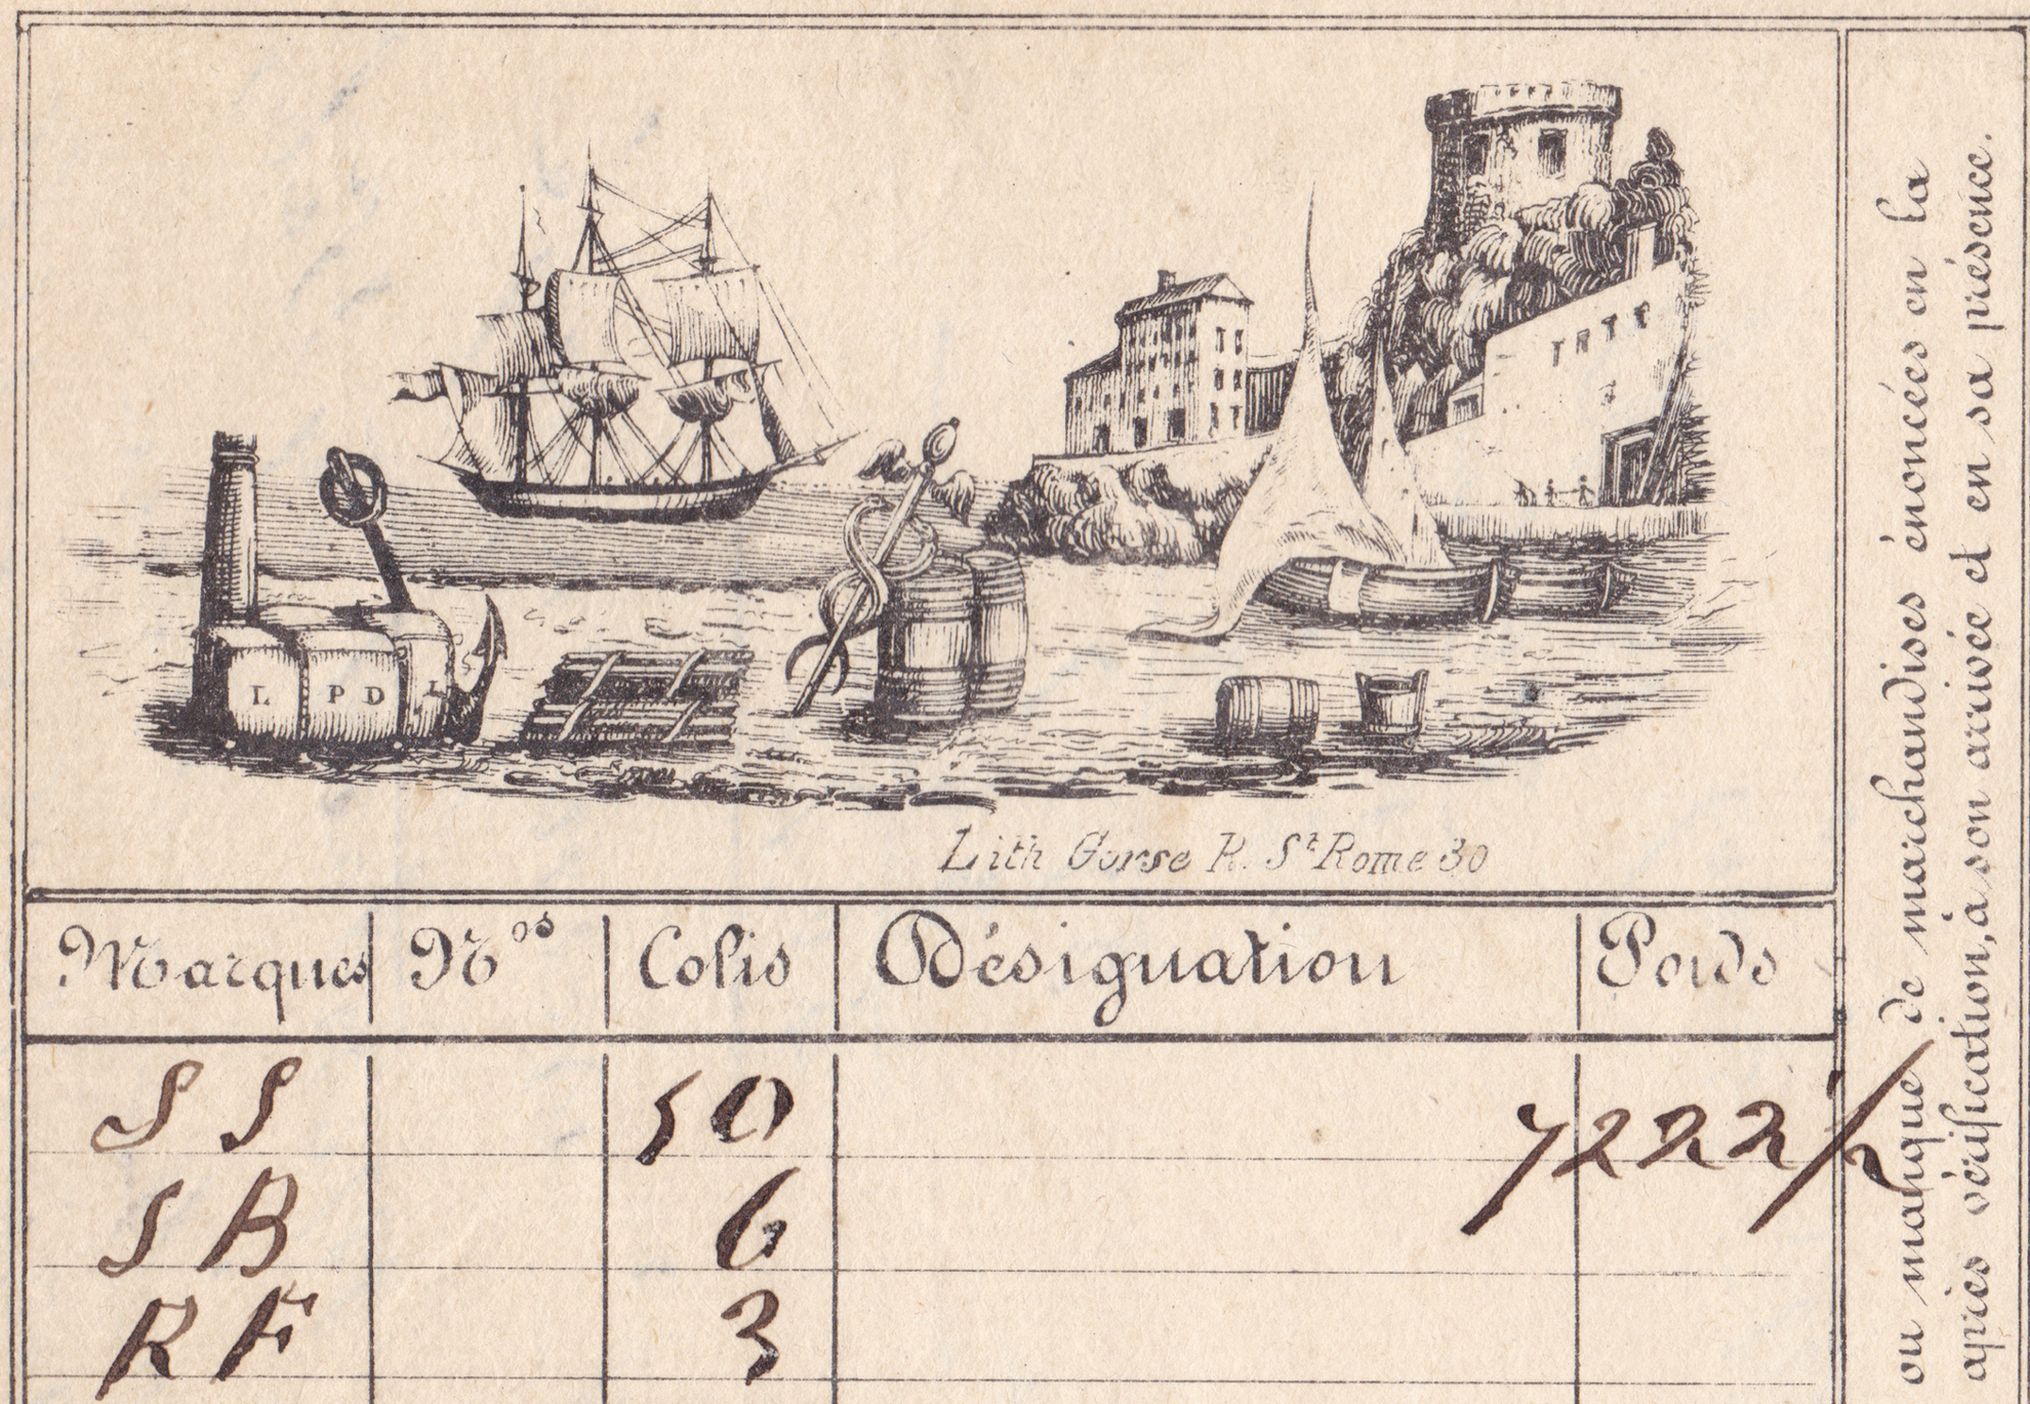 L P D L
Lith Gorse R. St Rome 30
Marques Nos Colis Désignation Poids
S S 50 7222 ½
S B 6
R F 3
ou manque de marchandises énoncées en la
après vérification, à son arrivée et en sa présence.